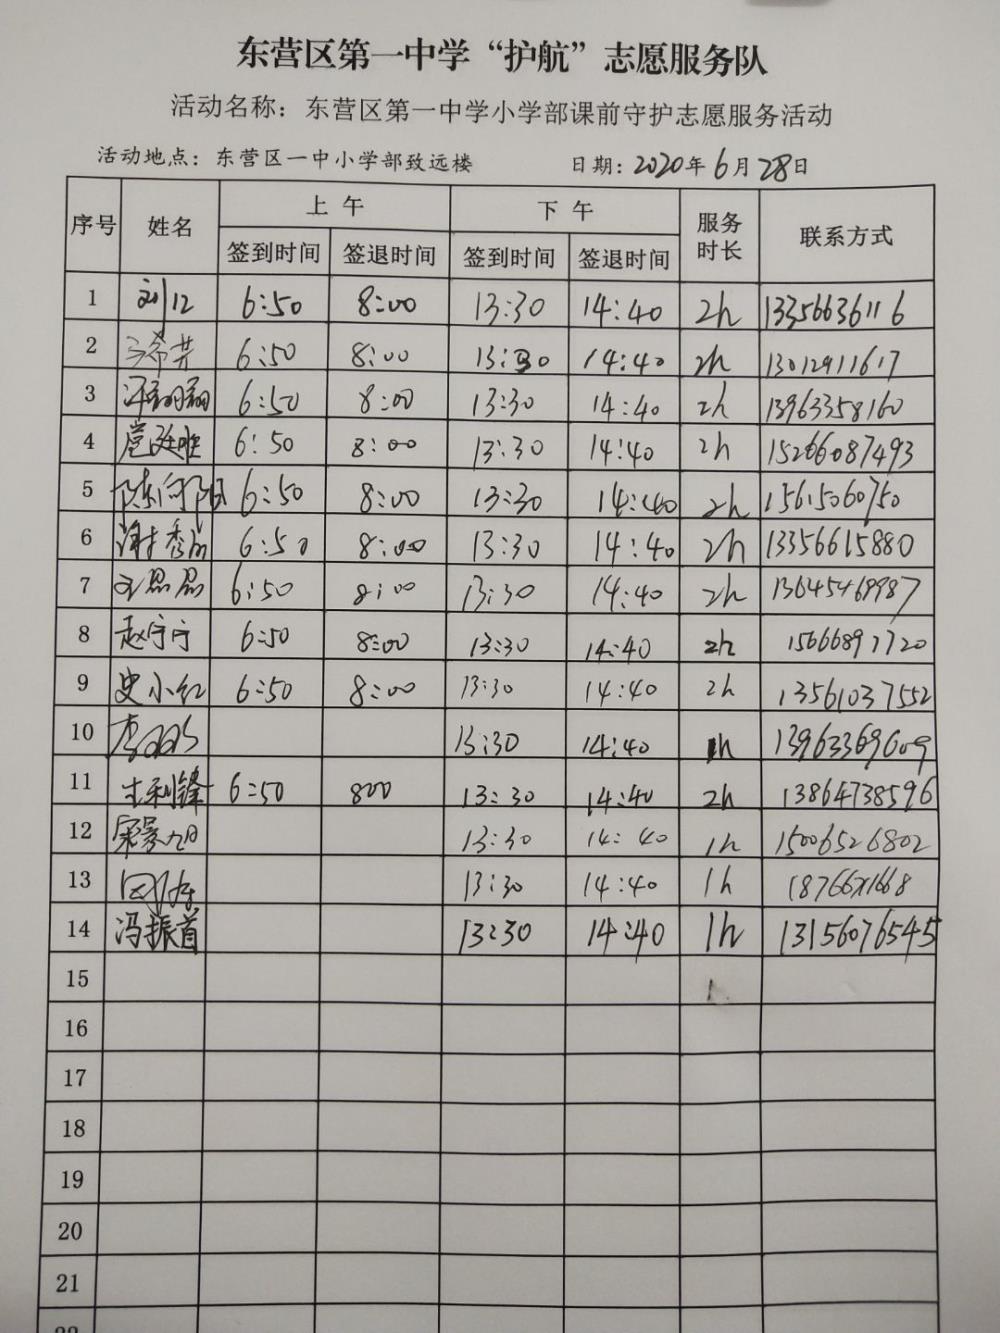 东营区第一中学“护航”志愿服务队
活动名称：东营区第一中学小学部课前守护志愿服务活动
活动地点：东营区一中小学部致远楼 日期：2020年6月28日
序号 姓名 上午 下午 服务时长 联系方式
签到时间 签退时间 签到时间 签退时间
1 6:50 8:00 13:30 14:40 2h 13356636116
2 6:50 8:00 13:30 14:40 2h 13012911617
3 6:50 8:00 13:30 14:40 2h 13963358160
4 6:50 8:00 13:30 14:40 2h 15266087493
5 陈向阳 6:50 8:00 13:30 14:40 2h 15615060750
6 6:50 8:00 13:30 14:40 2h 13356615880
7 6:50 8:00 13:30 14:40 2h 13645469987
8 赵宁宁 6:50 8:00 13:30 14:40 2h 15666897720
9 史小红 6:50 8:00 13:30 14:40 2h 13561037552
10 13:30 14:40 1h 13963369609
11 6:50 800 13:30 14:40 2h 13864738596
12 13:30 14:40 1h 15006526802
13 13:30 14:40 1h
14 冯振首 13:30 14:40 1h 13156076545
15
16
17
18
19
20
21